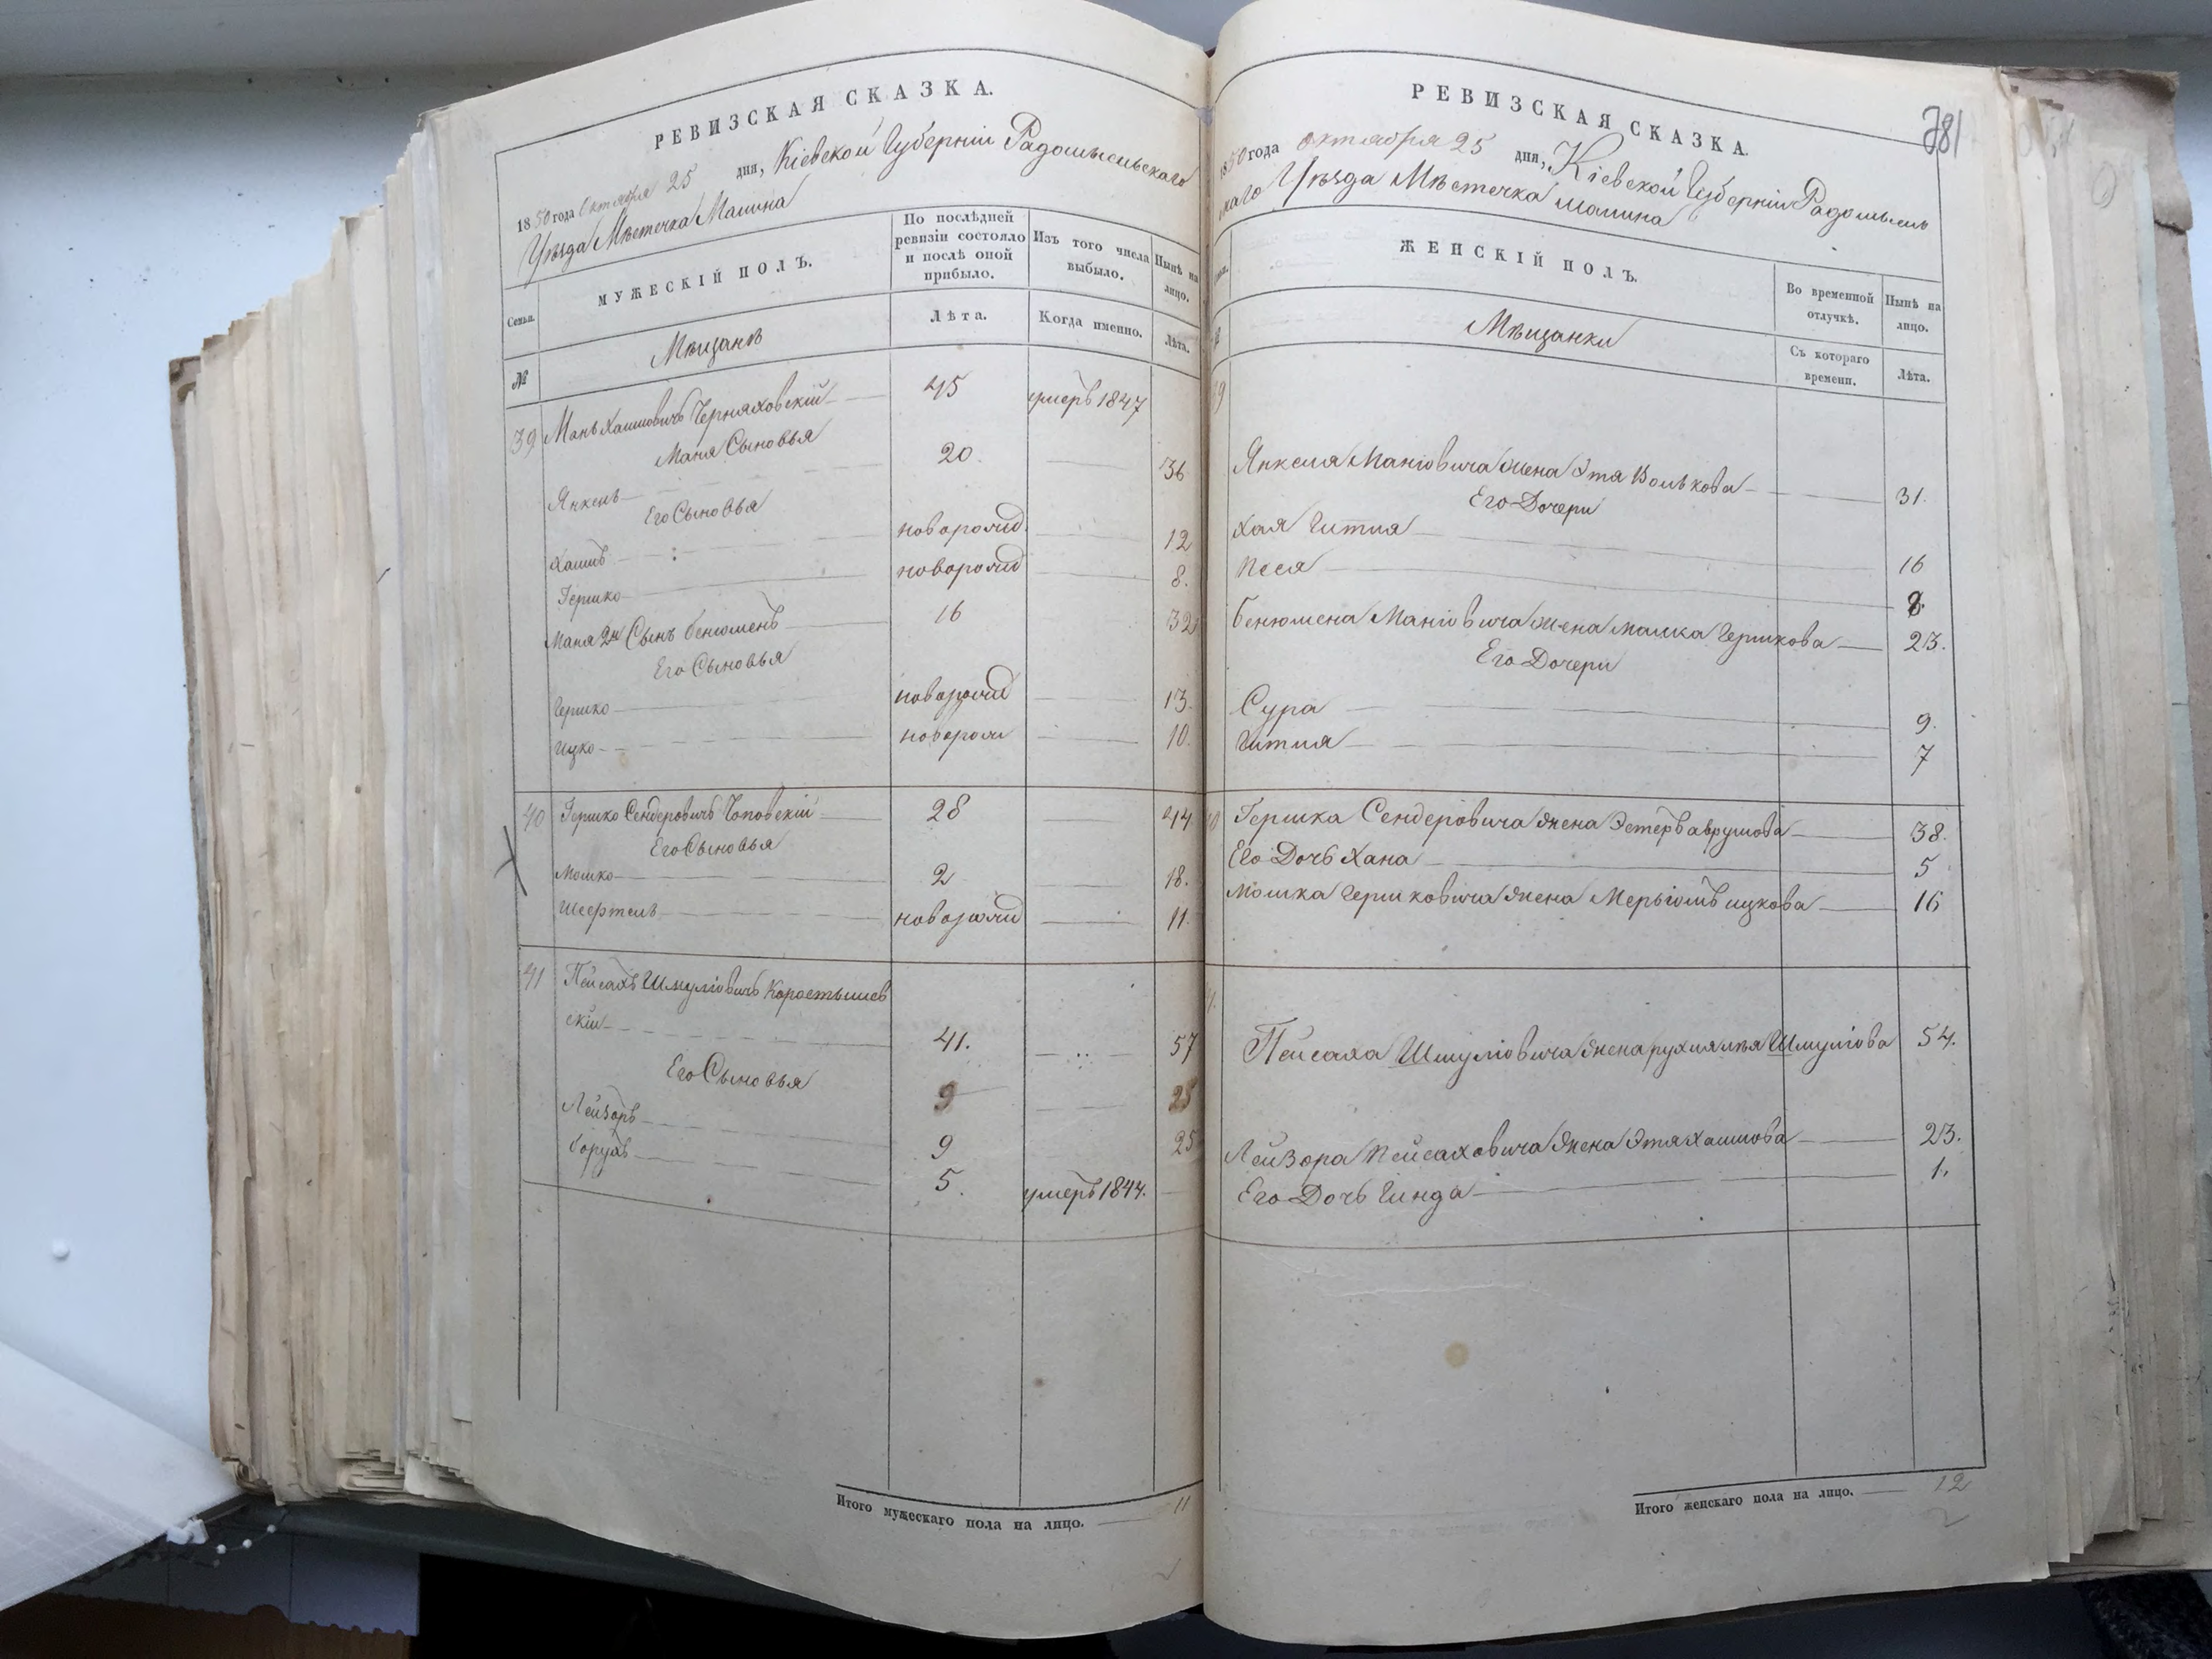 РЕВИЗСКАЯ СКАЗКА.
1850 года Октября 25 дня, Кіевской Губерніи Радомысльскаго
Уѣзда Мѣстечка Малина
Семьи.
МУЖЕСКІЙ ПОЛЪ.
По послѣдней ревизіи состояло и послѣ оной прибыло.
Изъ того числа выбыло.
Нынѣ на лицо.
№
Мѣщанѣ
Лѣта.
Когда именно.
Лѣта.
39 Мань Хаимовичъ Черняховскій 45 умеръ 1847
Маня Сыновья
Янкель 20 36
Его Сыновья
Хаимъ новорожд. 12
Гершко новорожд 8.
Маня 2й Сынъ Бенюменъ 16 32
Его Сыновья
Гершко новорожд 13.
Ицко новорож 10.
40 Гершко Сендеровичъ Чоповскій 28 44
Его Сыновья
Мошко 2 18.
Шефтель новорожд 11.
41 Пейсахъ Шмуліовичъ Коростышев
скій 41. 57
Его Сыновья
9 25
Лейзоръ 9 25
Борухъ 5. умеръ 1844.
Итого мужескаго пола на лицо. 11
РЕВИЗСКАЯ СКАЗКА.
381
1850 года Октября 25 дня, Кіевской Губерніи Радомысль
скаго Уѣзда Мѣстечка Малина
ЖЕНСКІЙ ПОЛЪ.
Во временной отлучкѣ.
Нынѣ на лицо.
Мѣщанки
Съ котораго времени.
Лѣта.
39
Янкеля Маніовича жена Этя Волькова 31.
Его Дочери
Хая Гитля 16
Песя 8.
Бенюмена Маніовича жена Малка Гершкова 23.
Его Дочери
Сура 9.
Гитля 7
40 Гершка Сендеровича жена Эстеръ Аврумова 38.
Его Дочь Хана 5
Мошка Гершковича жена Меріомъ Ицкова 16
41.
Пейсаха Шмуліовича жена Рухля Лея Шмуліова 54.
Лейзора Пейсаховича жена Этя Хаимова 23.
Его Дочь Гинда 1.
Итого женскаго пола на лицо. 12